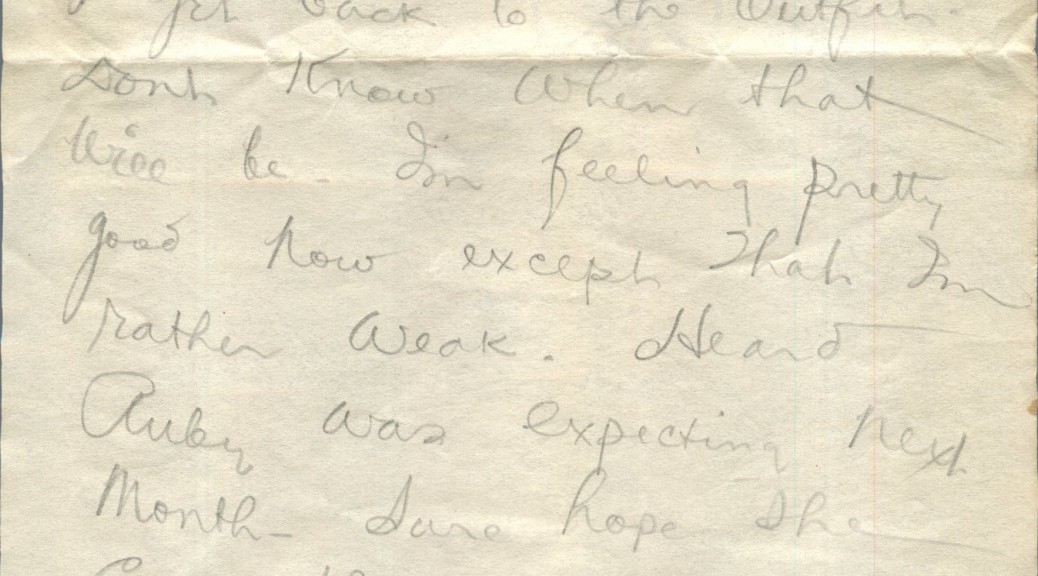 get back to the Outfit.
Dont Know When that
Will be. Im feeling pretty
good now except That Im
rather weak. Heard
Ruby was expecting next
Month - Sure hope she